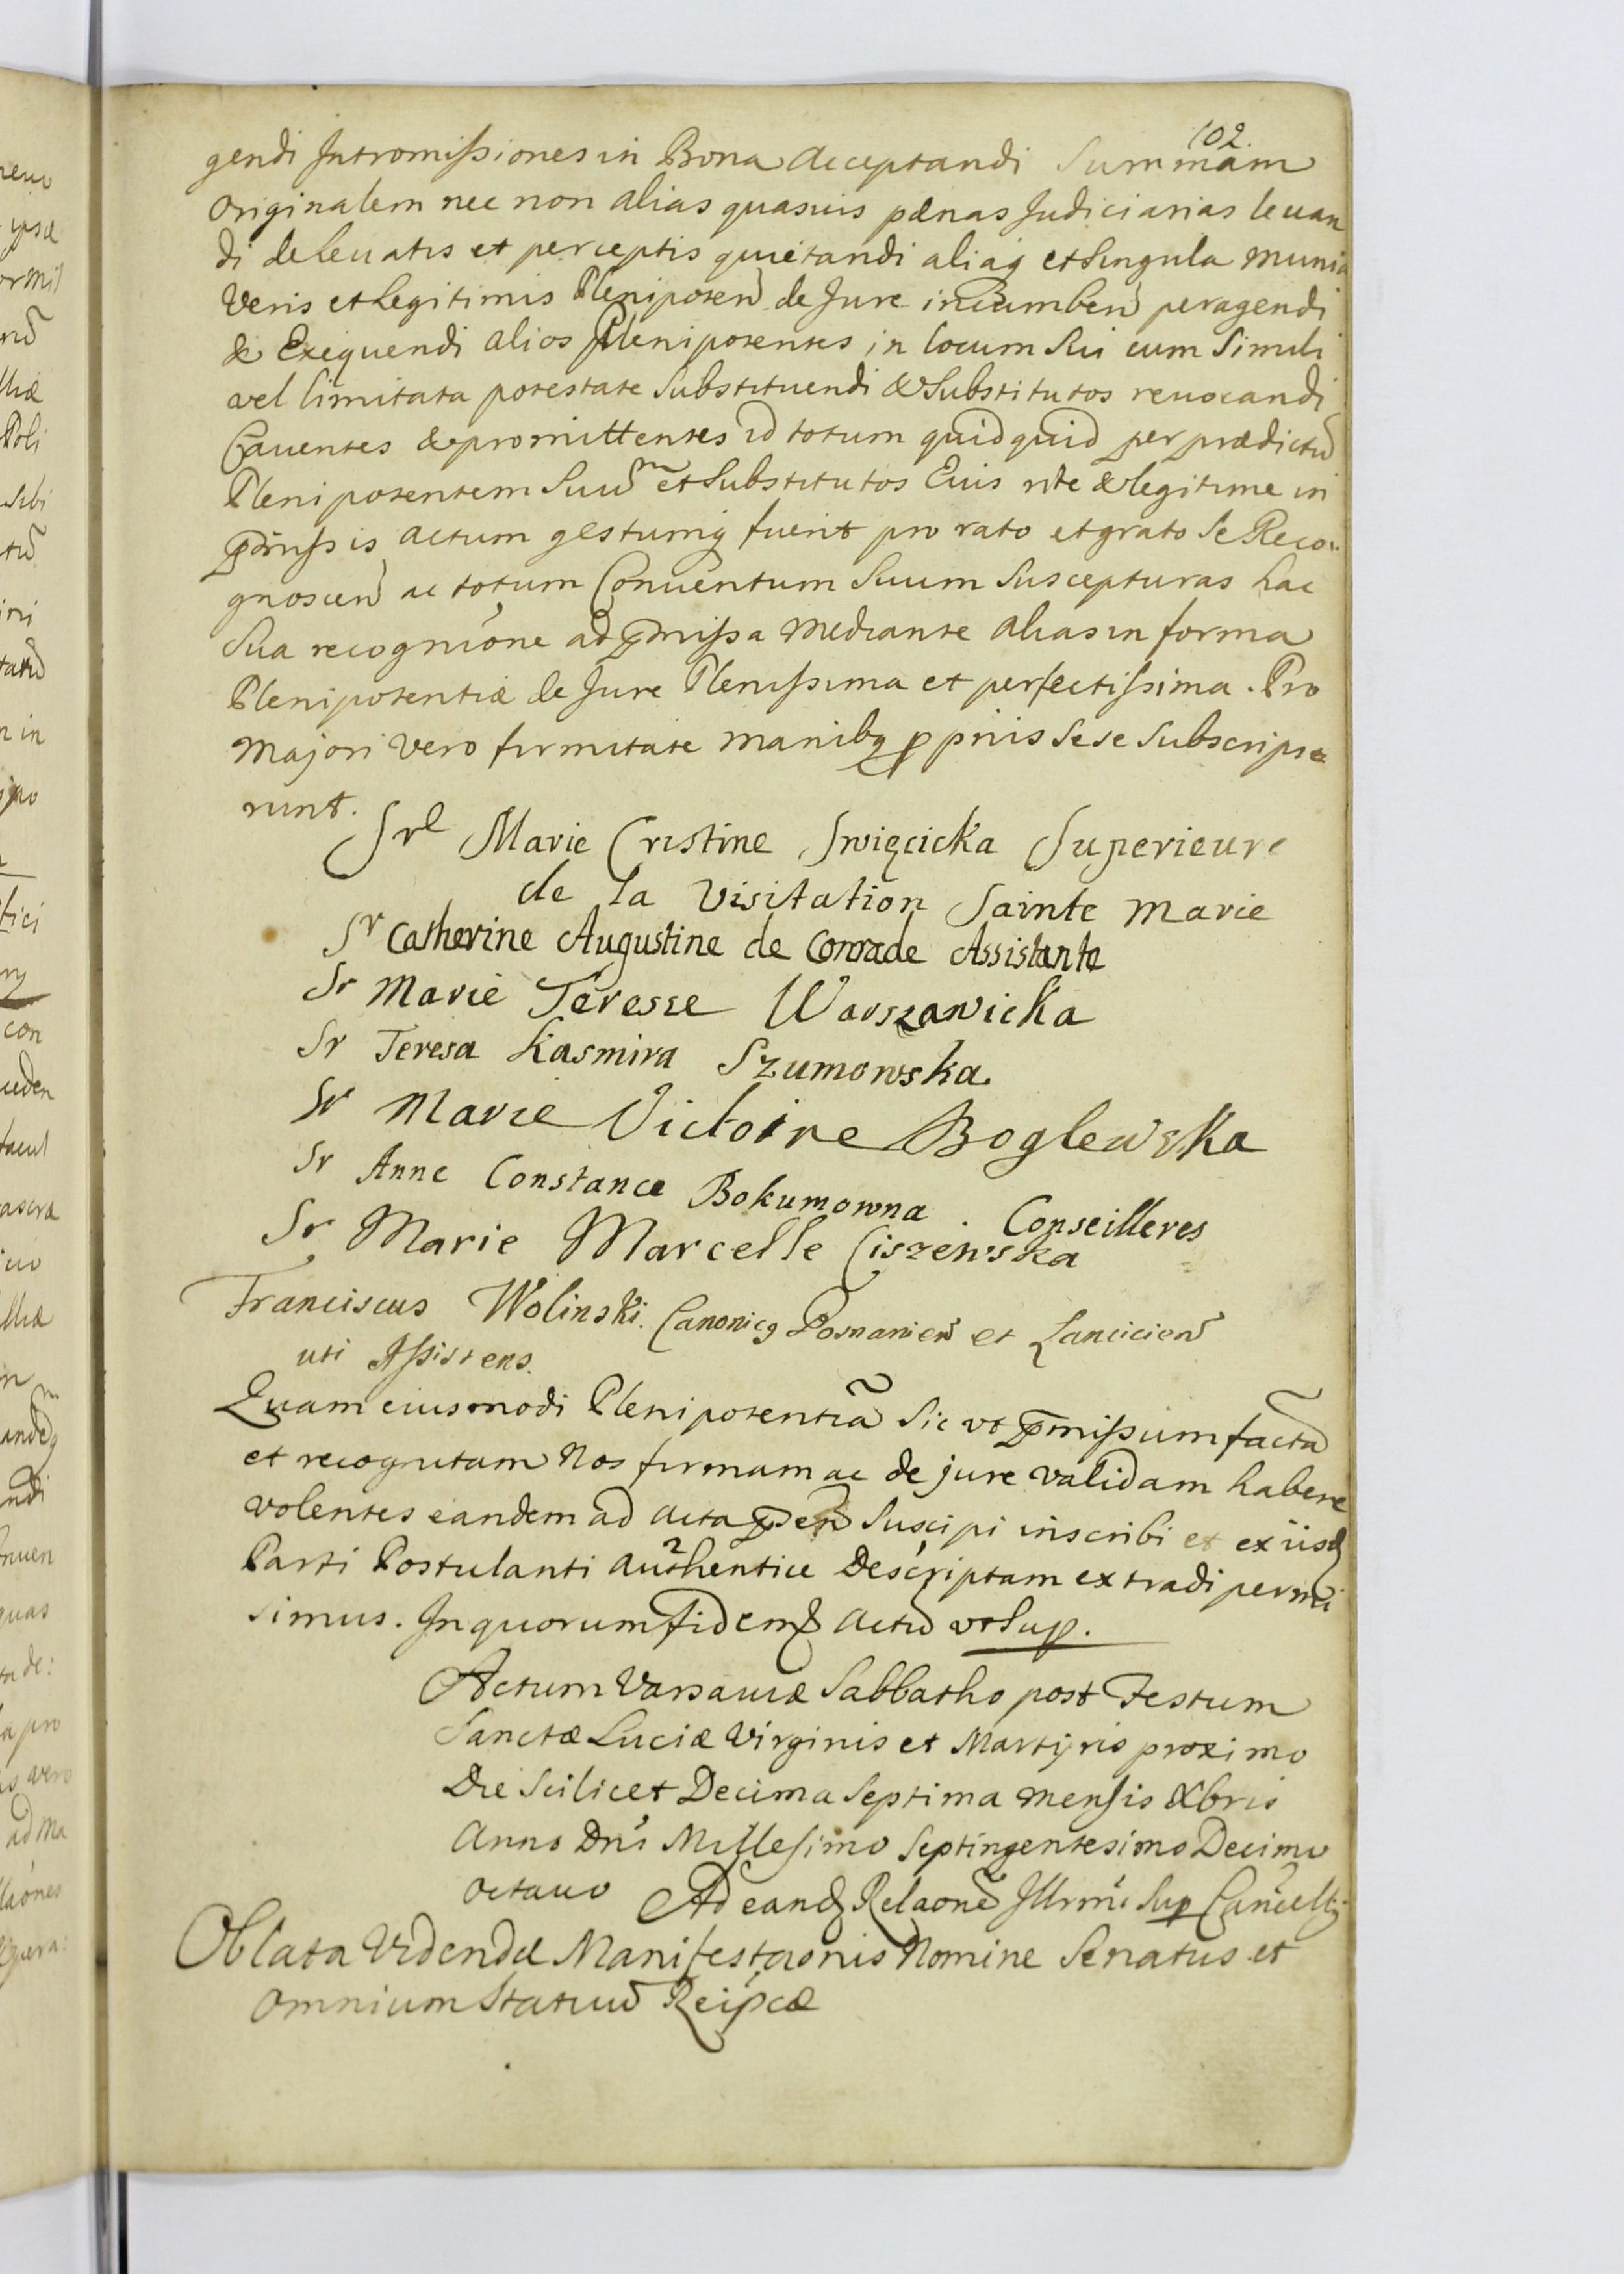 102.
gendi Intromissiones in Bona acceptandi Summam
Originalem nec non alias quasuis pænas Judiciarias leuan
di de leuatis et perceptis quietandi aliaq et Singula munia
Veris et Legitimis Plenipoten de Jure incumben peragendi
& Exequendi alios Plenipotentes in locum Sui cum Simili
vel limitata potestate Substituendi & Substitutos reuocandi
Cauentes & promittentes id totum quidquid per prædictū
Plenipotentem Suum et Substitutos Eius rite & legitime in
pmissis actum gestumq fuerit pro rato et grato Se Reco-
gnoscen ac totum Conuentum Suum Suscepturas hac
Sua recognione ad pmissa mediante alias in forma
Plenipotentiæ de Jure Plenissima et perfectissima. Pro
Majori vero firmitate manibq pprijs Sese Subscripse
runt.
Sr Marie Cristine Swięcicka Superieure
de la Visitation Sainte Marie
Sr Catherine Augustine de Conrade Assistante
Sr Marie Teresse Warszawicka
Sr Teresa Kasmira Szumowska.
Sr Marie Victoire Boglewska
Sr Anne Constance Bokumowna. Conseilleres
Sr Marie Marcelle Ciszewska
Franciscus Wolinski. Canonicq Posnanien et Lancicien
uti Assistens.
Quam eiusmodi Plenipotentiā Sic vt pmissum factā
et recognitam Nos firmam ac de jure validam habere
volentes eandem ad acta pn Suscipi inscribi et ex iisd
Parti Postulanti authentice Descriptam extradi permi
simus. In quorum fidem Actū vt Sup.
Actum Varsauiæ Sabbatho post Festum
Sanctæ Luciæ Virginis et Martyris proximo
Die Scilicet Decima Septima mensis Xbris
Anno Dni Millesimo Septingentesimo Decimo
octauo Ad eand Relaonē Illrmi Sup Cancellrij
Oblata Videndæ Manifestaonis Nomine Senatus et
Omnium Statuū Reipcæ